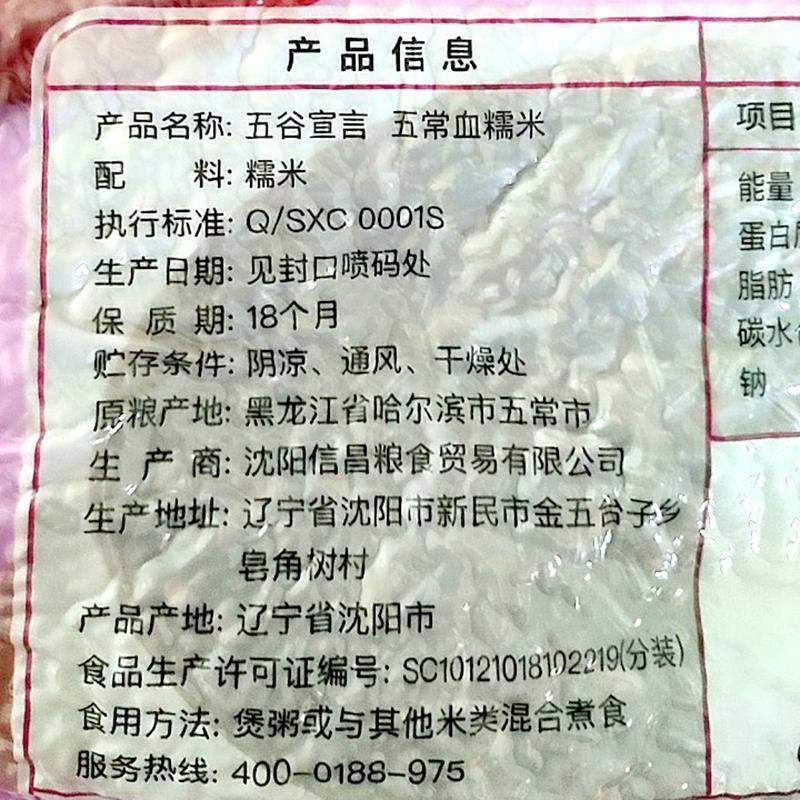 产品信息
产品名称: 五谷宣言 五常血糯米
配 料: 糯米
执行标准: Q/SXC 0001S
生产日期: 见封口喷码处
保 质 期: 18个月
贮存条件: 阴凉、通风、干燥处
原粮产地: 黑龙江省哈尔滨市五常市
生 产 商: 沈阳信昌粮食贸易有限公司
生产地址: 辽宁省沈阳市新民市金五台子乡
皂角树村
产品产地: 辽宁省沈阳市
食品生产许可证编号: SC10121018102219(分装)
食用方法: 煲粥或与其他米类混合煮食
服务热线: 400-0188-975
项目
能量
蛋白
脂肪
碳水
钠